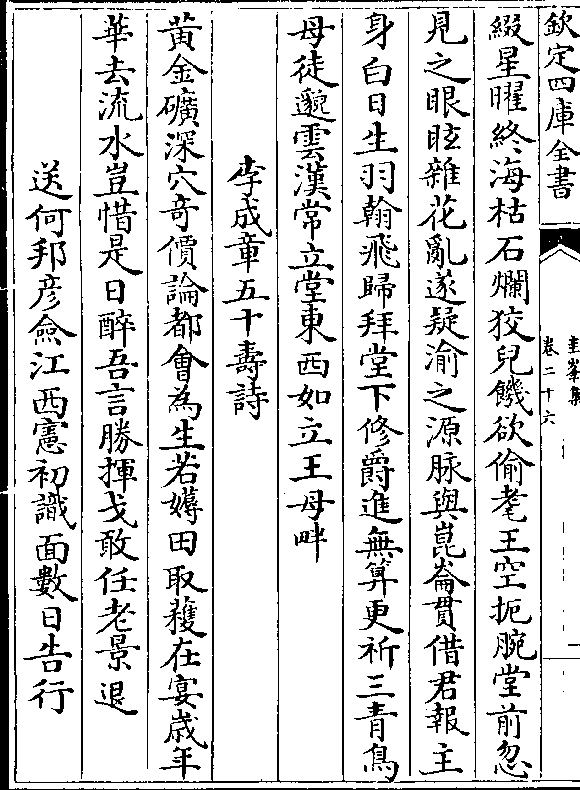 欽定四庫全書
圭峯集
卷二十六
綴星曜終海枯石爛狡兒饑欲偷耄王空扼腕堂前忽
見之眼眩雜花亂遂疑渝之源脉與崑崙貫借君報主
身白日生羽翰飛歸拜堂下修爵進無算更祈三青鳥
母徒邈雲漢常立堂東西如立王母畔
李成章五十壽詩
黃金礦深穴奇價論都會為生若媷田取穫在宴歲年
華去流水豈惜是日醉吾言勝揮戈敢任老景退
送何邦彦僉江西憲初識面數日告行